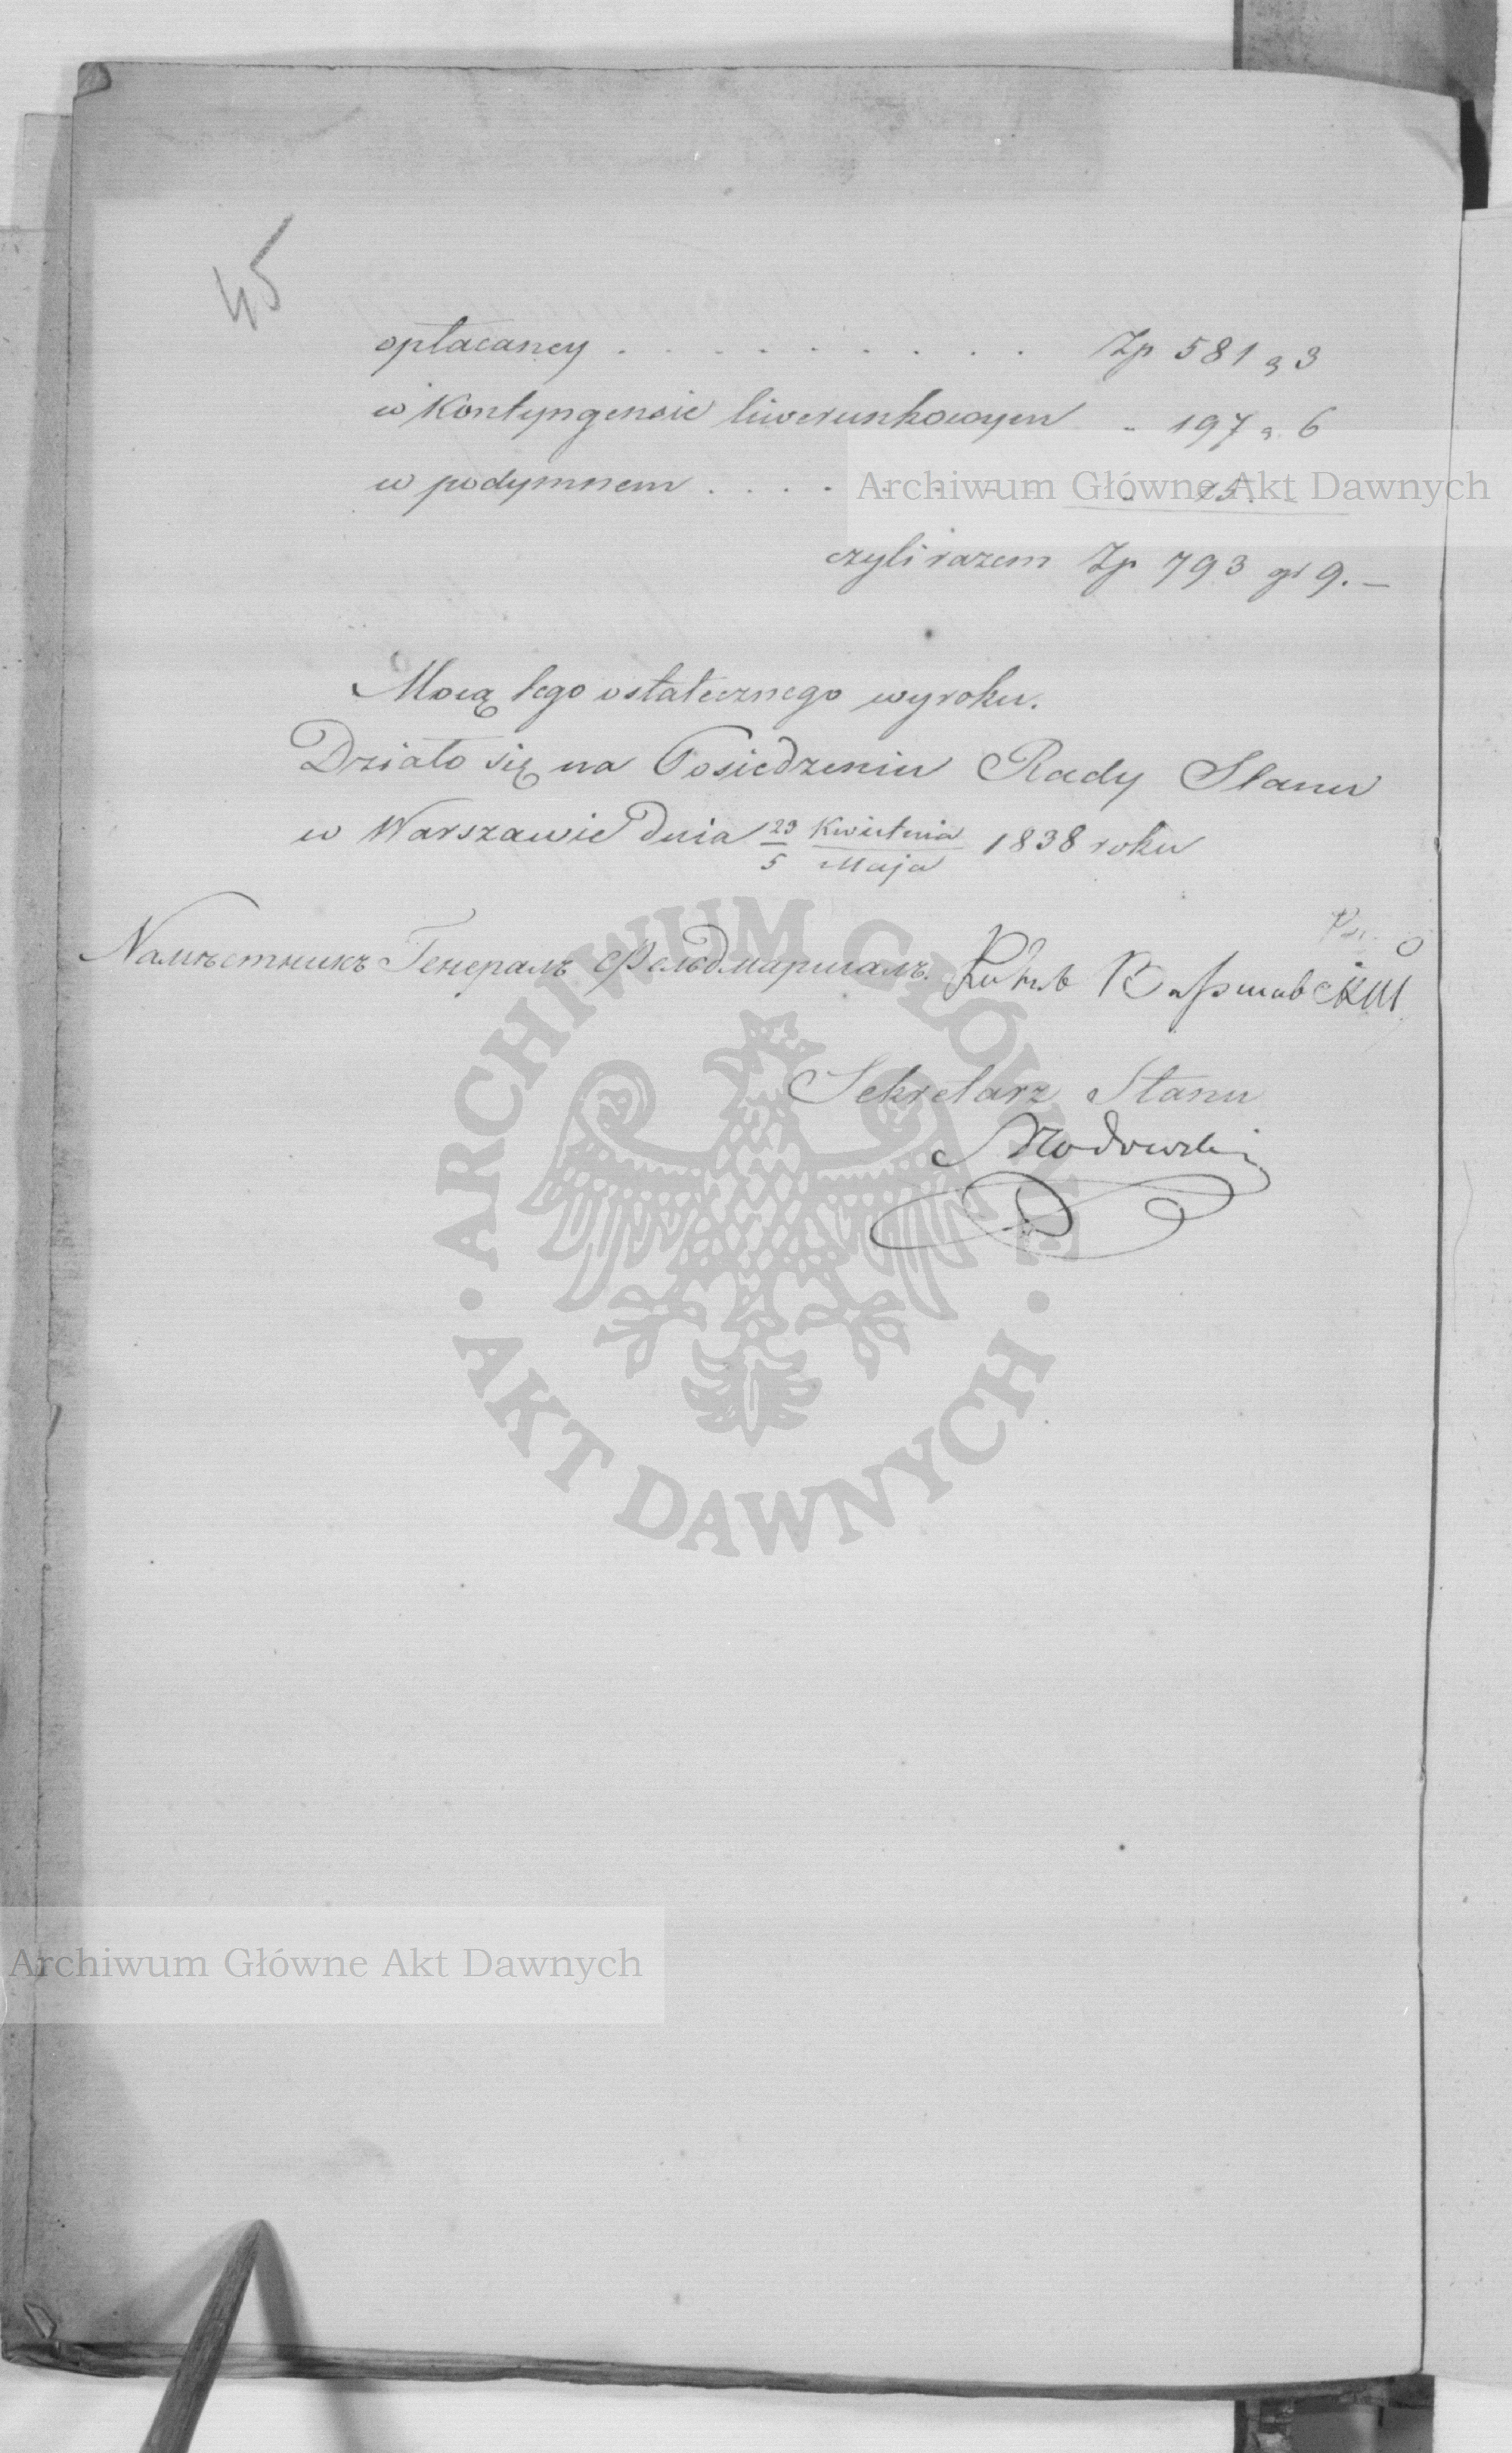 45
opłacaney . . . . . . . . . . Zp 581 g 3
w Kontyngensie liwerunkowym " 197 g. 6
w podymnem . . . . . . . " 15. -
czyli razem Zp 793 gr 9. —
Mocą tego ostatecznego wyroku.
Działo się na Posiedzeniu Rady Stanu
w Warszawie dnia 23/5 Kwietnia/Maja 1838 roku
Намѣстникъ Генералъ Фельдмаршалъ. Князь Варшавскій
Sekretarz Stanu
Archiwum Główne Akt Dawnych
ARCHIWUM GŁÓWNE • AKT DAWNYCH •
Archiwum Główne Akt Dawnych